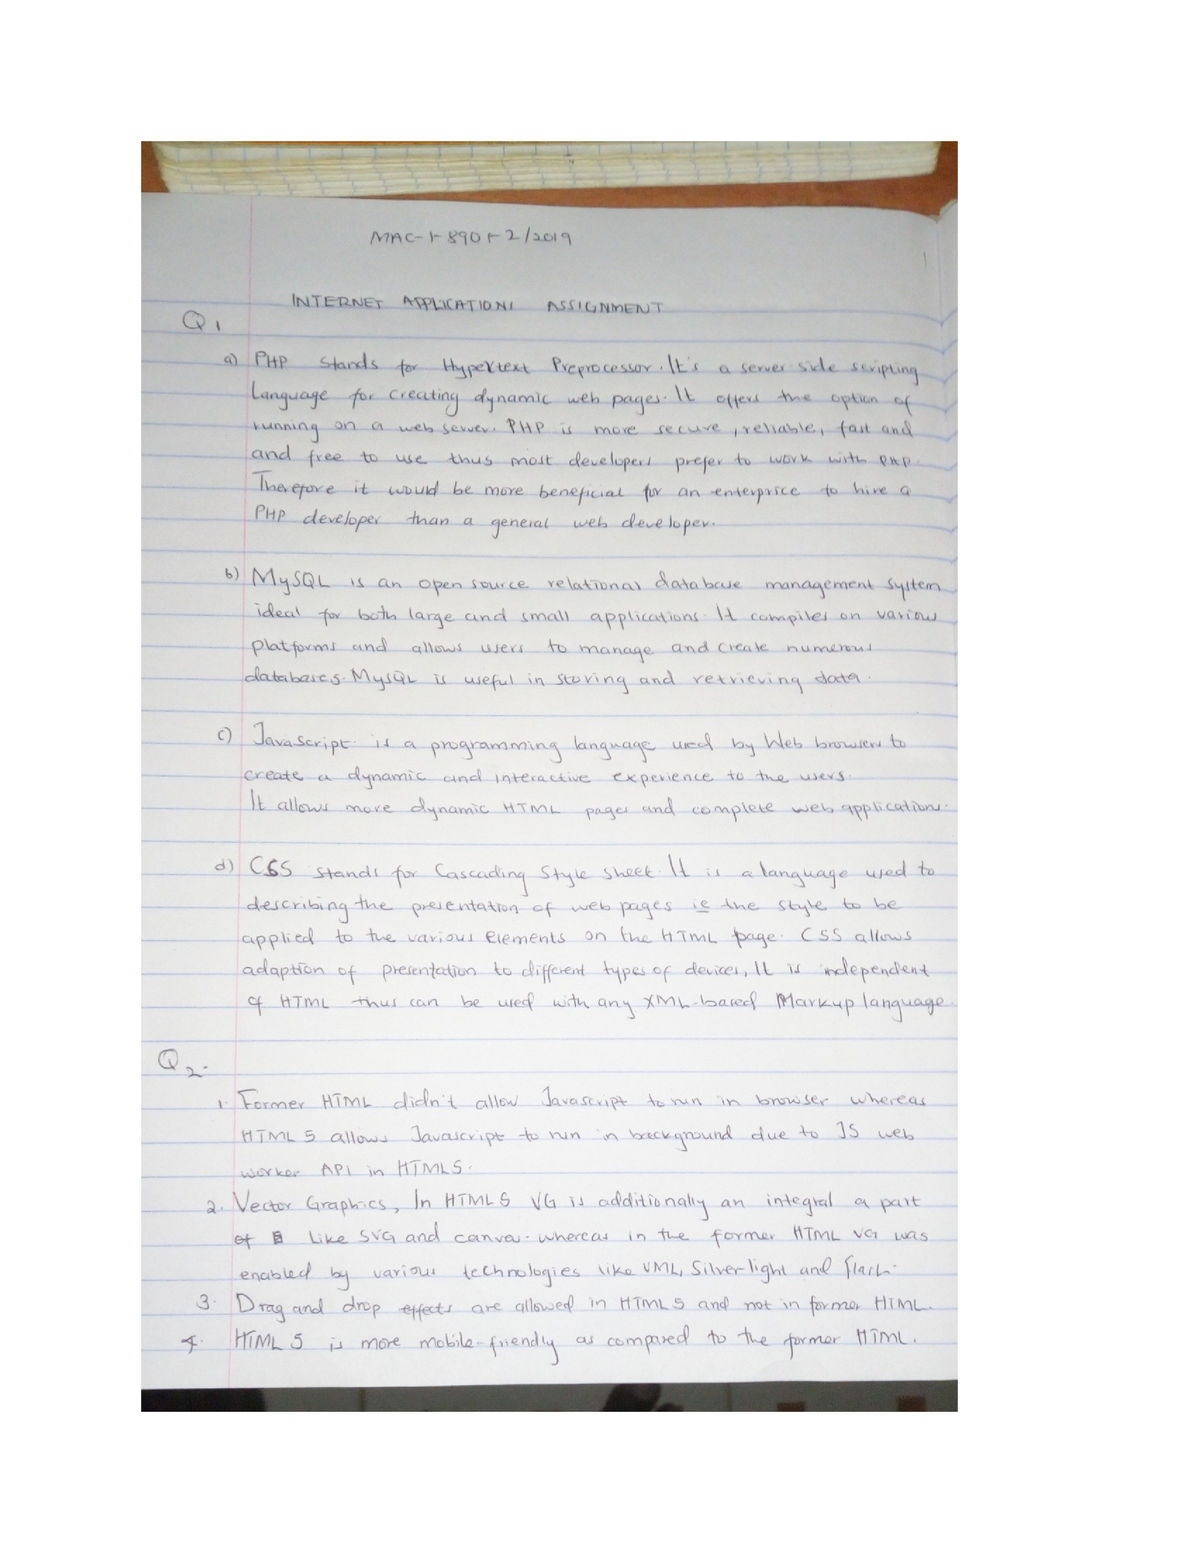 MAC-1-8901-2/2019
1
INTERNET APPLICATIONS ASSIGNMENT
Q1
a) PHP stands for Hypertext Preprocessor. It's a server side scripting
Language for creating dynamic web pages. It offers the option of
running on a web server. PHP is more secure, reliable, fast and
and free to use thus most developers prefer to work with PHP.
Therefore it would be more beneficial for an enterprice to hire a
PHP developer than a general web developer.
b) MySQL is an open source relational database management system
ideal for both large and small applications. It compiles on various
platforms and allows users to manage and create numerous
databases. MySQL is useful in storing and retrieving data.
c) JavaScript is a programming language used by Web browsers to
create a dynamic and interactive experience to the users.
It allows more dynamic HTML pages and complete web applications.
d) CSS stands for Cascading Style sheet. It is a language used to
describing the presentation of web pages ie the style to be
applied to the various elements on the HTML page. CSS allows
adaption of presentation to different types of devices, It is independent
of HTML thus can be used with any XML-based Markup language.
Q2.
1. Former HTML didn't allow Javascript to run in browser whereas
HTML 5 allows Javascript to run in background due to JS web
worker API in HTML5.
2. Vector Graphics, In HTML5 VG is additionally an integral a part
of like SVG and canva. whereas in the former HTML VG was
enabled by various technologies like VML, Silverlight and flash.
3. Drag and drop effects are allowed in HTML5 and not in former HTML.
4. HTML 5 is more mobile-friendly as compared to the former HTML.